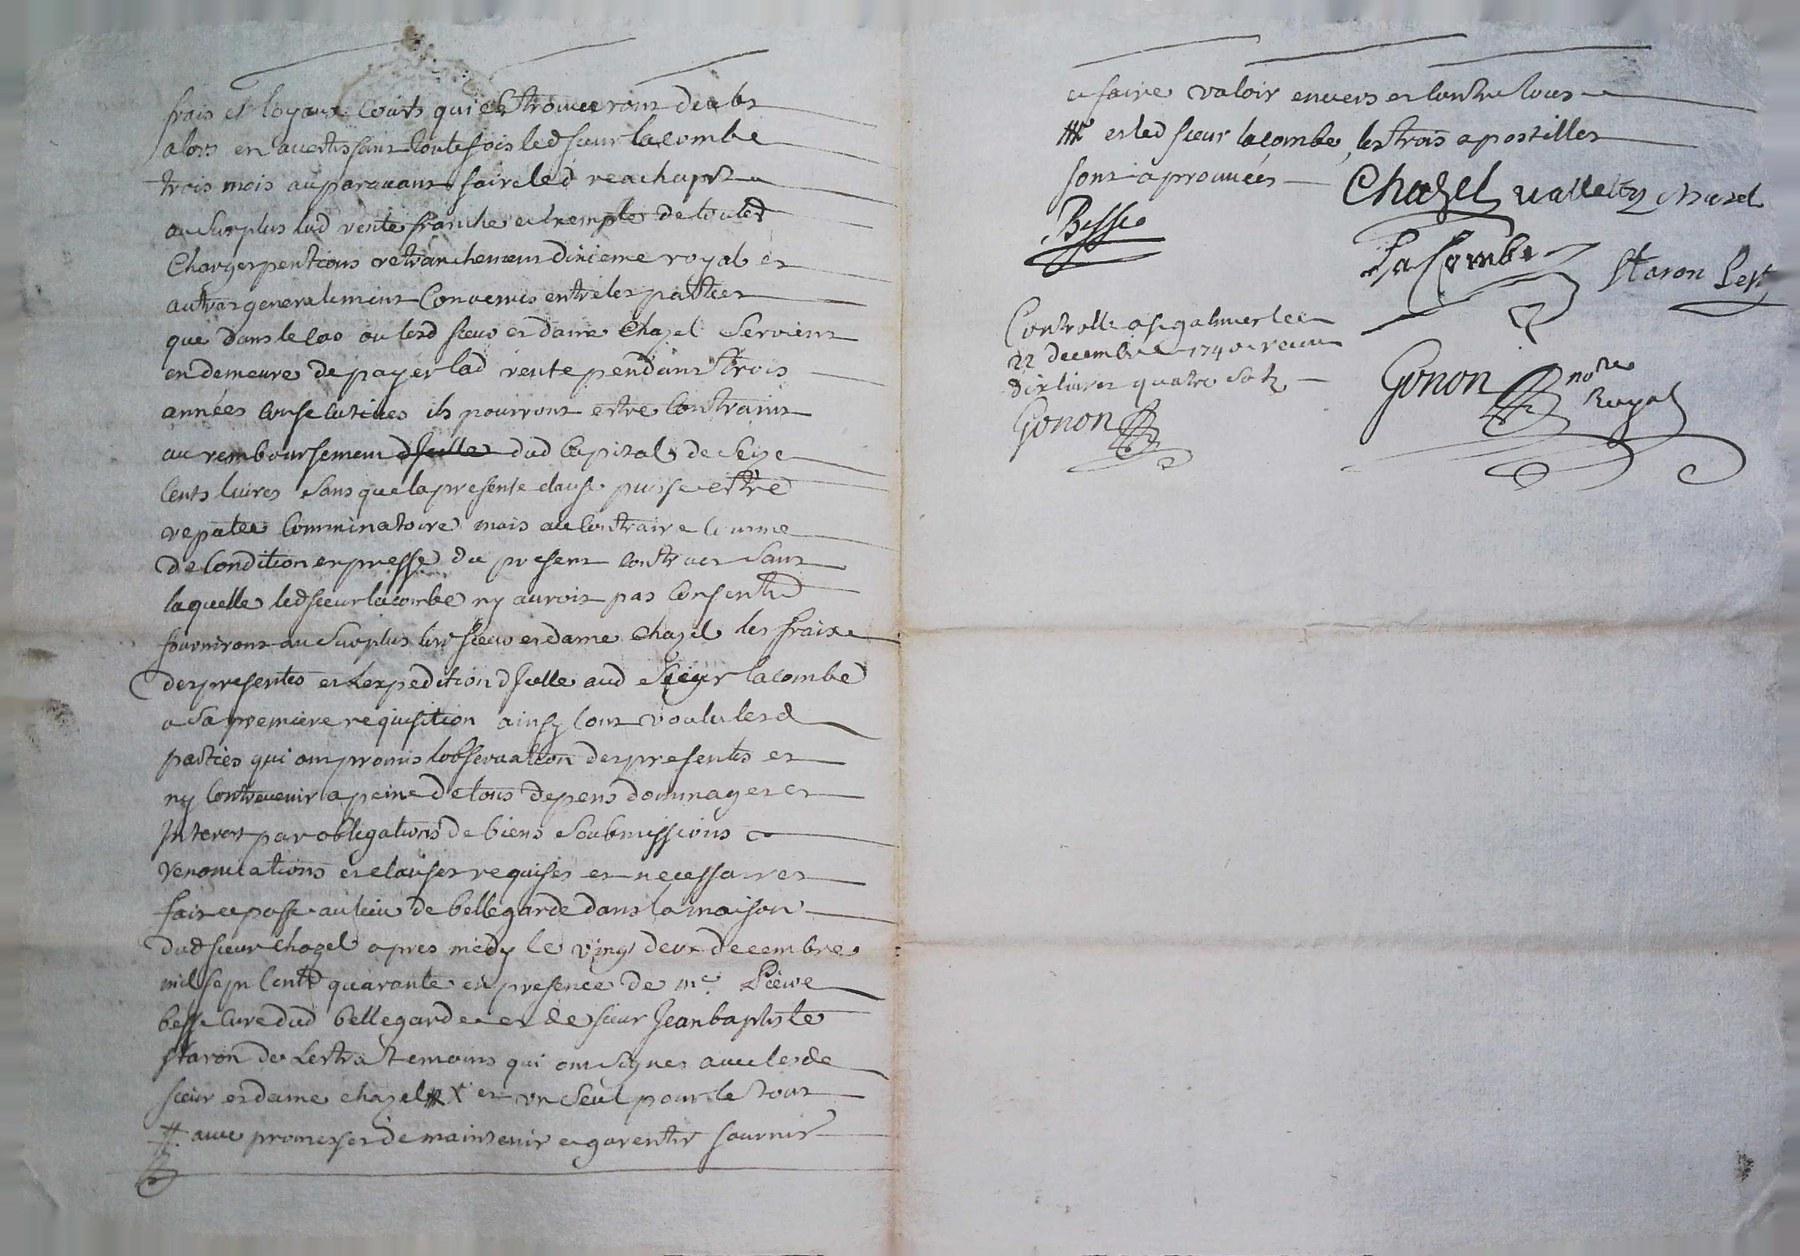 frais et loyaux couts qui se trouveront deubs
alors en avertissant toutefois led sieur lacombe
trois mois auparavant faire led reachapt
au surplus lad vente franche et exempte de toutes
charges pentions retranchement dixieme royal et
autres generalement convenus entre les parties
que dans le cas ou lesd sieur et dame Chazel seroient
en demeure de payer lad rente pendant trois
années consecutives ils pourront estre contraint
au remboursement dud capital de seize
cents livres sans que la presente clause puisse estre
reputée comminatoire mais au contraire comme
de condition expresse du present contract sans
laquelle led sieur lacombe ny auroit pas consenti
fourniront au surplus lesd sieur et dame Chazel les fraix
des presentes et lexpedition dJcelle aud sieur lacombe
a sa premiere requisition ainsy lont voulu lesd
parties qui ont promis lobservation des presentes et
ny contrevenir a peine de tous depens dommages et
Interest par obligations de biens soubmissions
renonciations et clauses requises et necessaires
fait et passé au lieu de bellegarde dans la maison
dud sieur chazel apres midy le vingt deux decembre
mil sept cent quarante en presence de mre Pierre
besse curé dud bellegarde et de sieur Jean baptiste
staron de Lestra temoins qui ont signes avec lesd
sieur et dame chazel # X et un seul pour le tout
# avec promesses de maintenir et garentir fournir
et faire valoir envers et contre tous
# et led sieur lacombe, les trois apostilles
sont aprouvées
Chazel valleta chazel
Besse
LaCombe
staron Lest
Controllé a st galmier le
22 decembre 1740 receu
dix livres quatre sols
Gonon
Gonon nore
Royal